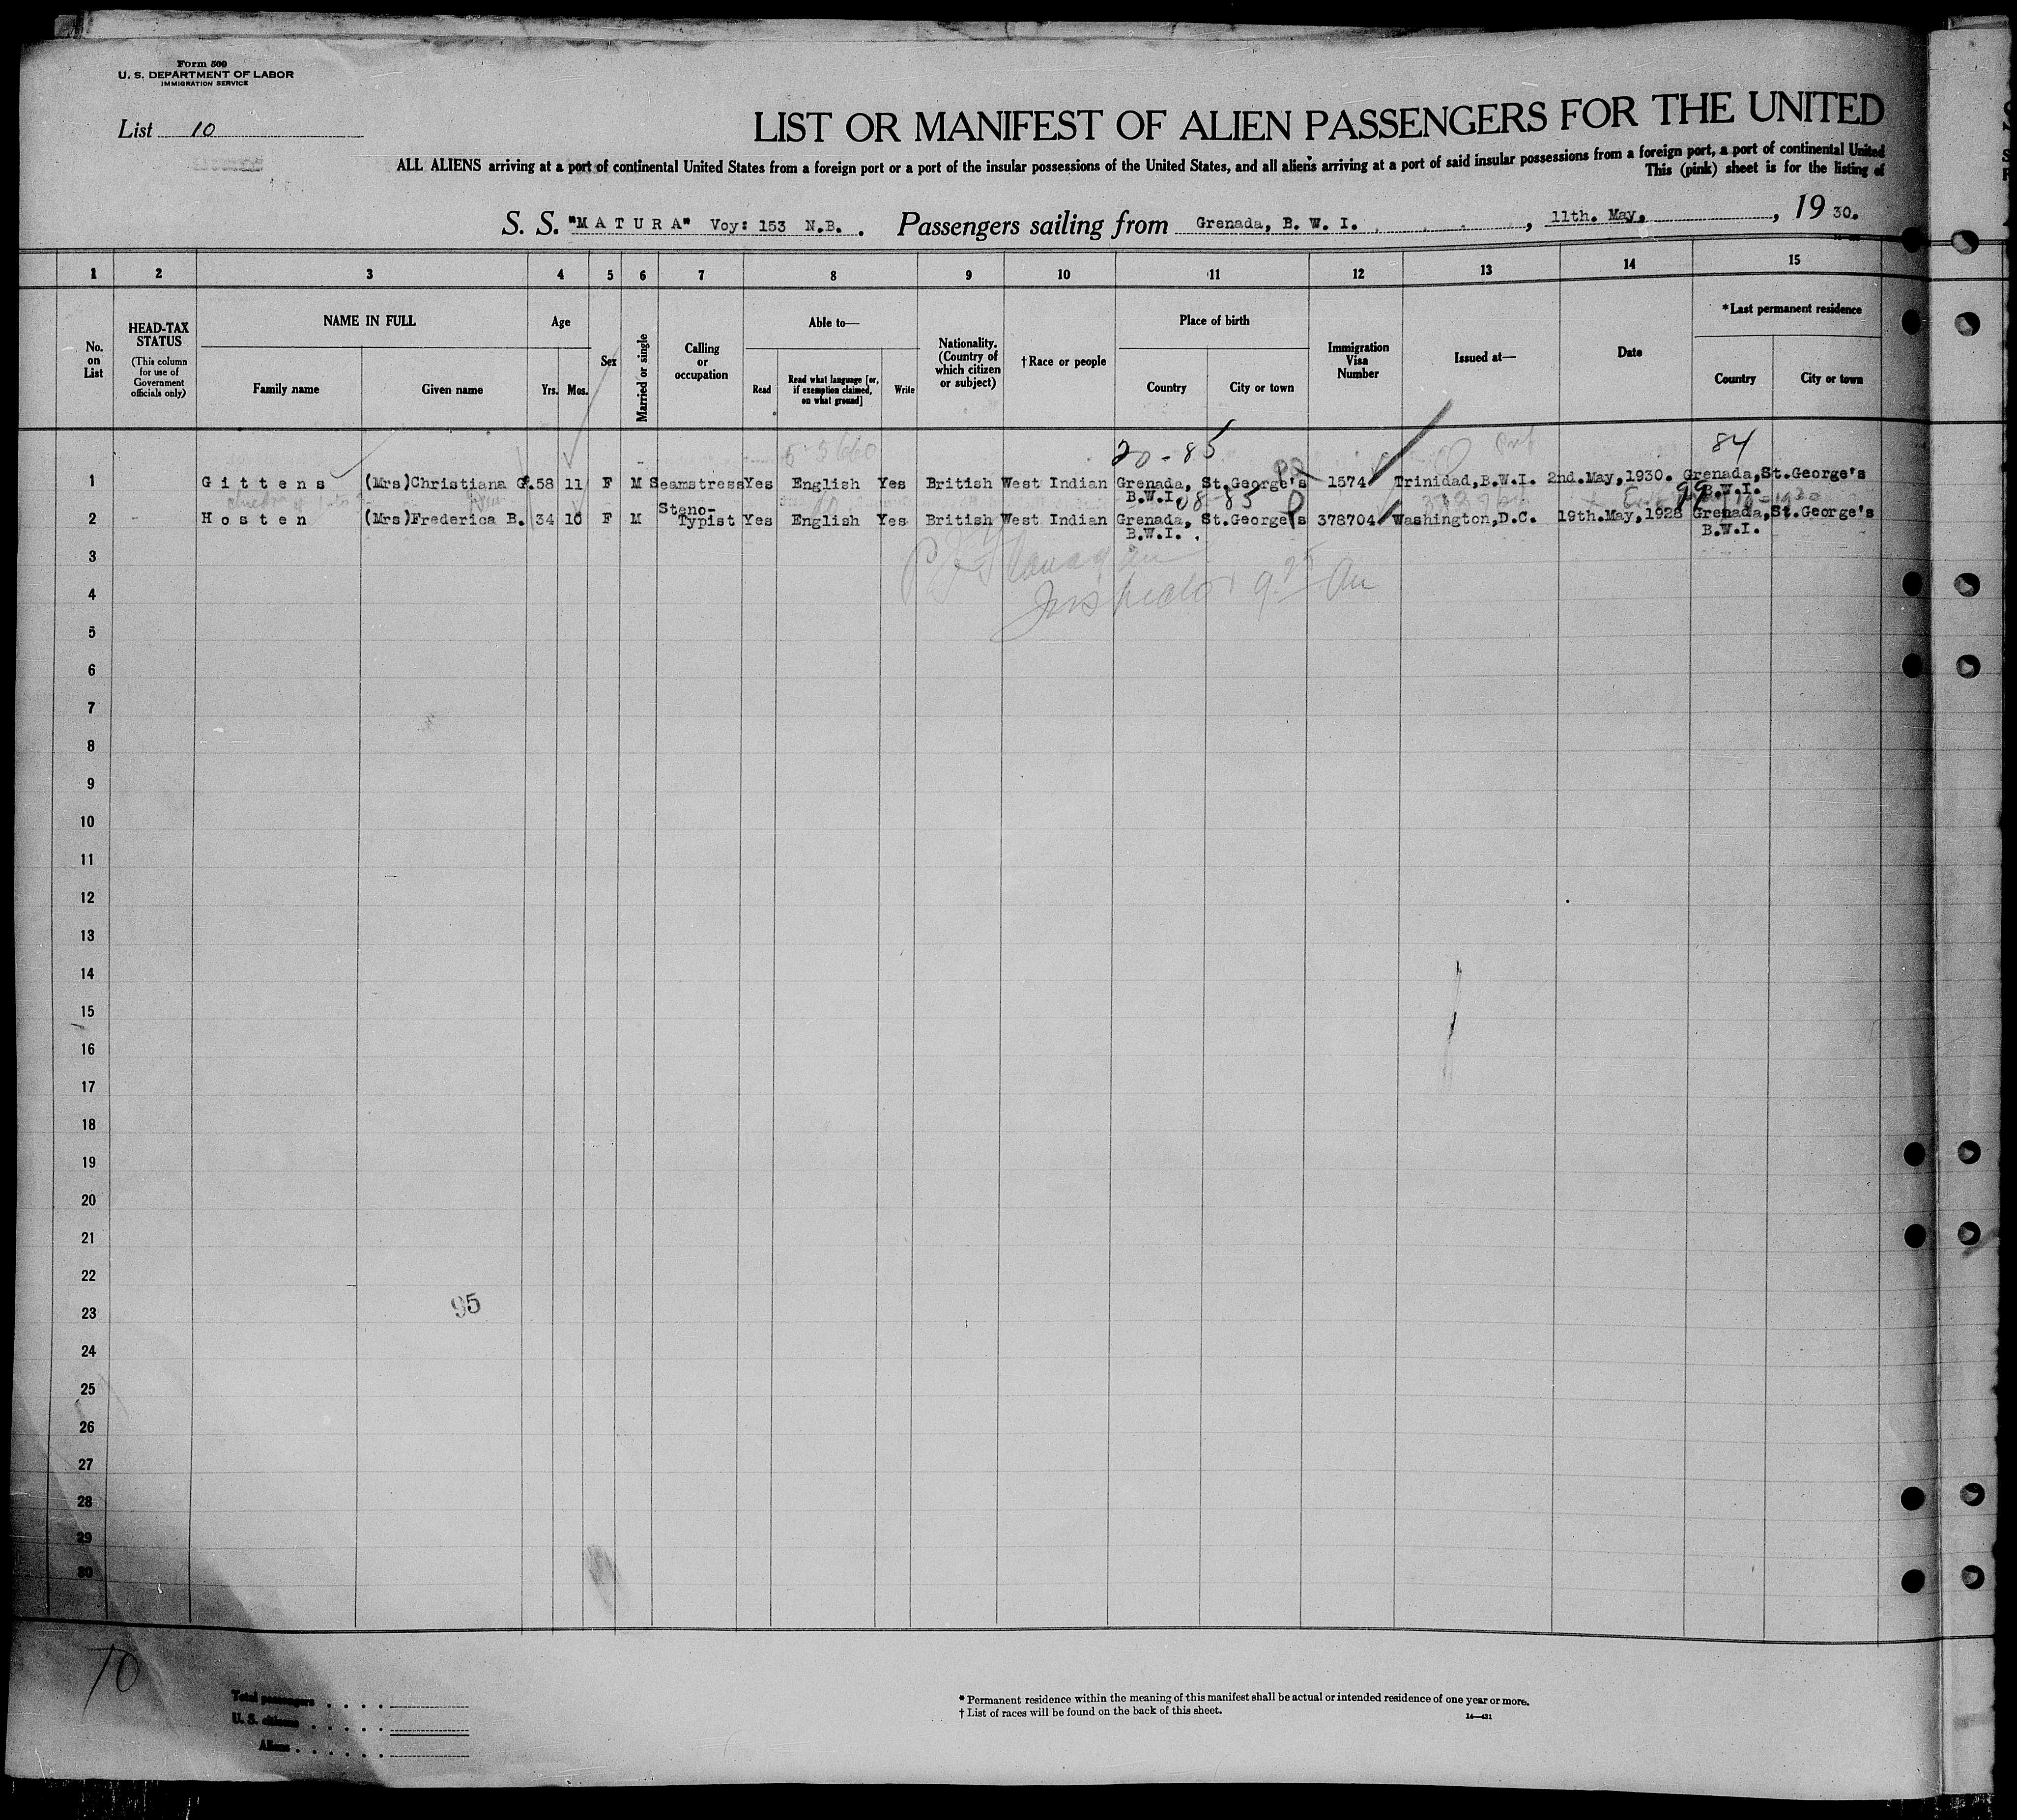 Form 500
U. S. DEPARTMENT OF LABOR
IMMIGRATION SERVICE
List 10
LIST OR MANIFEST OF ALIEN PASSENGERS FOR THE UNITED
ALL ALIENS arriving at a port of continental United States from a foreign port or a port of the insular possessions of the United States, and all aliens arriving at a port of said insular possessions from a foreign port, a port of continental United
This (pink) sheet is for the listing of
S. S. "MATURA" Voy: 153 N.B. . Passengers sailing from Grenada, B. W. I. , 11th. May. , 1930.
1 2 3 4 5 6 7 8 9 10 11 12 13 14 15
No. on List
HEAD-TAX STATUS
(This column for use of Government officials only)
NAME IN FULL
Family name Given name
Age
Yrs. Mos.
Sex
Married or single
Calling or occupation
Able to—
Read
Read what language [or, if exemption claimed, on what ground]
Write
Nationality. (Country of which citizen or subject)
†Race or people
Place of birth
Country City or town
Immigration Visa Number
Issued at—
Date
*Last permanent residence
Country City or town
20-85 84
1 Gittens (Mrs)Christiana G. 58 11 F M Seamstress Yes English Yes British West Indian Grenada, St.George's 1574 Trinidad,B.W.I. 2nd.May,1930. Grenada,St.George's
B.W.I. B.W.I.
08-85 99
Steno-
2 Hosten (Mrs)Frederica B. 34 10 F M Typist Yes English Yes British West Indian Grenada, St.George's 378704 Washington,D.C. 19th.May,1928 Grenada,St.George's
B.W.I. B.W.I.
3
Inspector
4
5
6
7
8
9
10
11
12
13
14
15
16
17
18
19
20
21
22
23 95
24
25
26
27
28
29
30
10
Total passengers
U. S. citizens
Aliens
* Permanent residence within the meaning of this manifest shall be actual or intended residence of one year or more.
† List of races will be found on the back of this sheet.
14—431